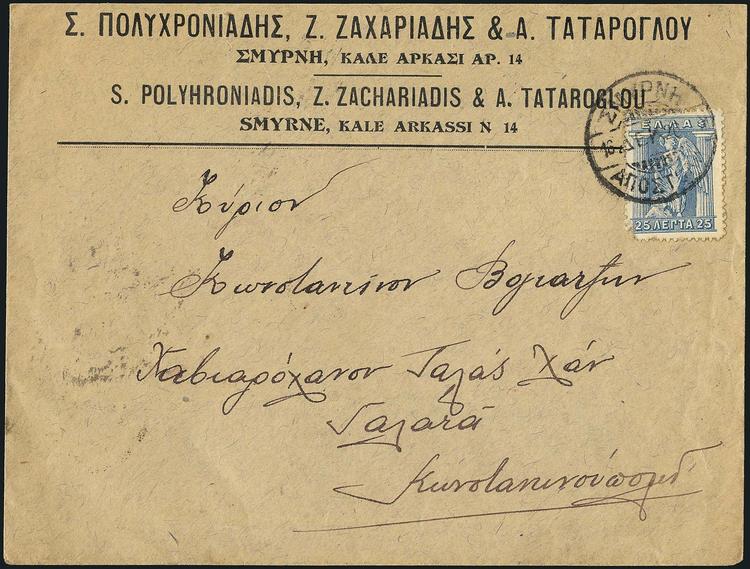 Σ. ΠΟΛΥΧΡΟΝΙΑΔΗΣ, Ζ. ΖΑΧΑΡΙΑΔΗΣ & Α. ΤΑΤΑΡΟΓΛΟΥ
ΣΜΥΡΝΗ, ΚΑΛΕ ΑΡΚΑΣΙ ΑΡ. 14
S. POLYHRONIADIS, Z. ZACHARIADIS & A. TATAROGLOU
SMYRNE, KALE ARKASSI N 14
ΣΜΥΡΝΗ
ΑΠΟΣΤ
ΕΛΛΑΣ
25 ΛΕΠΤΑ 25
Κύριον
Κωνσταντίνον
Χαβιαρόχανον Γαλάς Χάν
Γαλατά
Κωνσταντινούπολιν